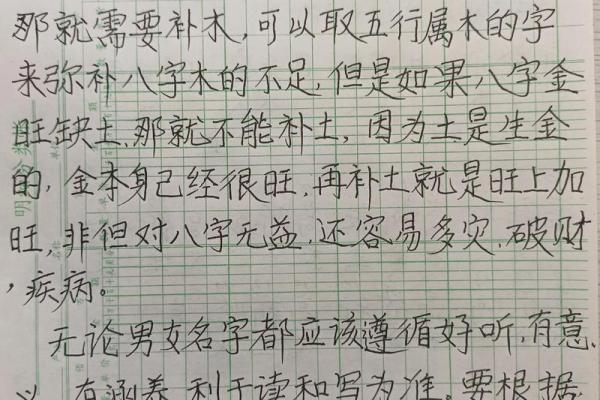 那就需要补木,可以取五行属木的字
来弥补八字木的不足,但是如果八字金
旺缺土,那就不能补土,因为土是生金
的,金本身己经很旺,再补土就是旺上加
旺,非但对八字无益,还容易多灾,破财
,疾病。
无论男女名字都应该遵循好听,有意
义,有涵养,利于读和写为准,要根据